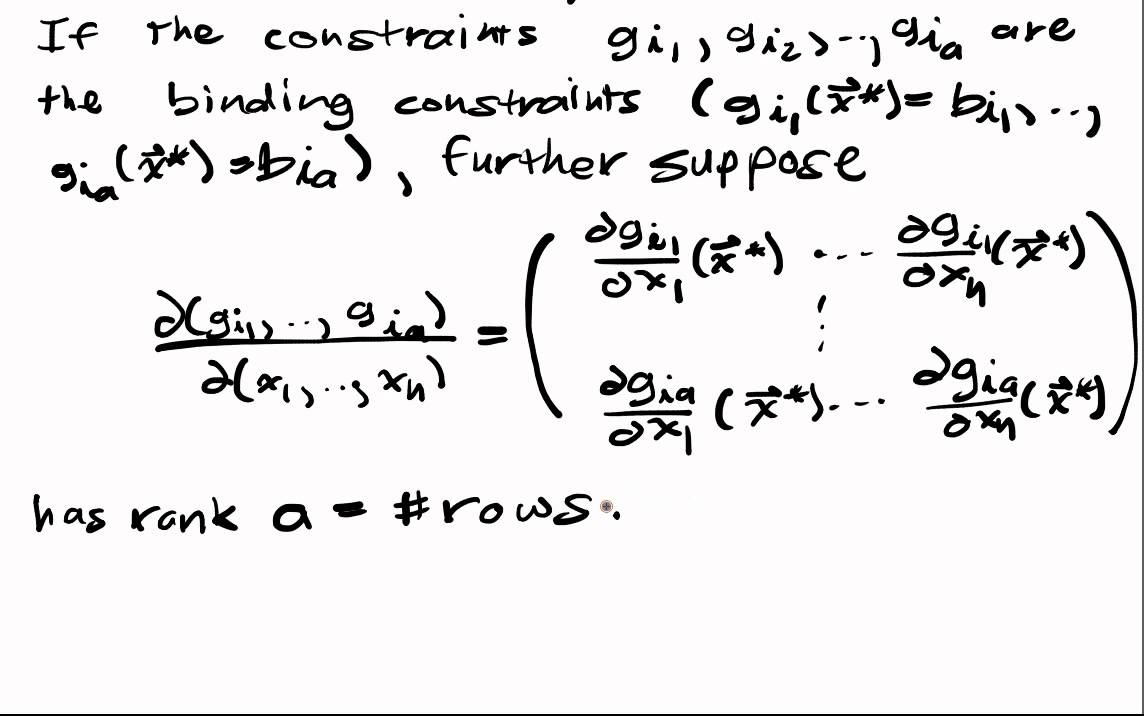 If the constraints g_{i_1}, g_{i_2}, ..., g_{i_a} are
the binding constraints (g_{i_1}(\vec{x}^*) = b_{i_1}, ...,
g_{i_a}(\vec{x}^*) = b_{i_a}), further suppose
\frac{\partial(g_{i_1}, ..., g_{i_a})}{\partial(x_1, ..., x_n)} = \begin{pmatrix} \frac{\partial g_{i_1}}{\partial x_1}(\vec{x}^*) & \cdots & \frac{\partial g_{i_1}}{\partial x_n}(\vec{x}^*) \\ & \vdots & \\ \frac{\partial g_{i_a}}{\partial x_1}(\vec{x}^*) & \cdots & \frac{\partial g_{i_a}}{\partial x_n}(\vec{x}^*) \end{pmatrix}
has rank a = #rows.